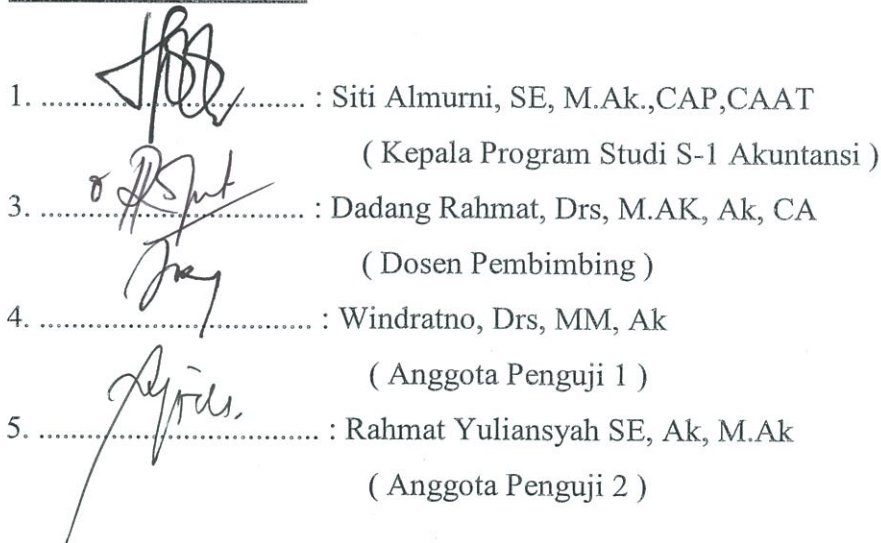 1. .................................. : Siti Almurni, SE, M.Ak.,CAP,CAAT
( Kepala Program Studi S-1 Akuntansi )
3. .................................. : Dadang Rahmat, Drs, M.AK, Ak, CA
( Dosen Pembimbing )
4. .................................. : Windratno, Drs, MM, Ak
( Anggota Penguji 1 )
5. .................................. : Rahmat Yuliansyah SE, Ak, M.Ak
( Anggota Penguji 2 )